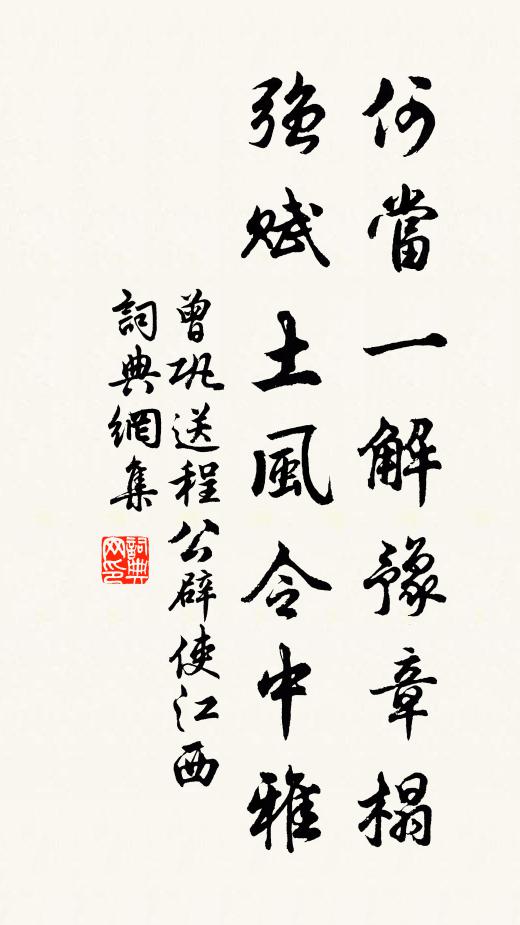 何當一解豫章榻
強賦土風令中雅
曾巩送程公辟使江西
詞典網集
詞典网印